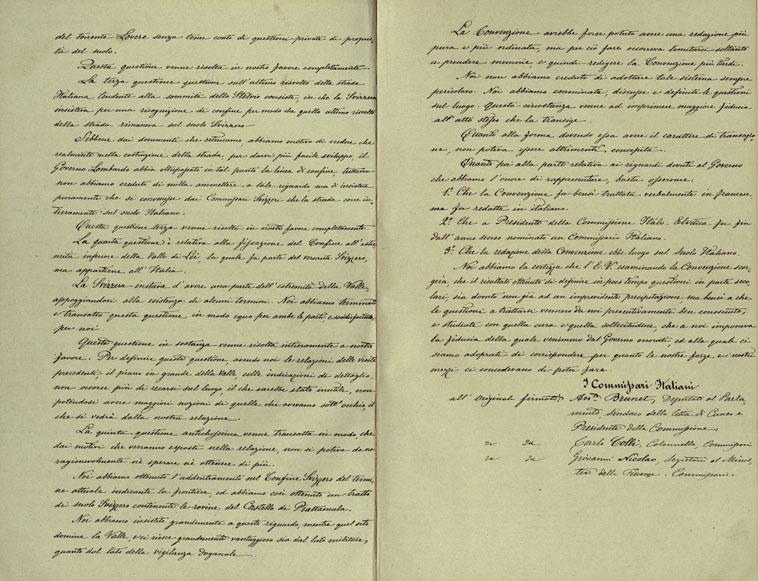 del torrente Lovere senza tener conto di questioni private di proprie-
tà del suolo.
Questa questione venne risolta in nostro favore completamente.
La terza questione questione sull'ultimo risvolto della strada
Italiana tendente alla sommità dello Stelvio consiste, in che la Svizzera
insisteva per una ricognizione di confine per modo che quello ultimo risvolto
della strada rimaneva sul suolo Svizzero.
Sebbene dai documenti che riteniamo abbiamo motivo di credere che
realmente nella costruzione della strada, per darvi più facile sviluppo, il
Governo Lombardo abbia oltrepassato in tal punto la linea di confine, tuttavia
non abbiamo creduto di nulla ammettere a tale riguardo ma di insistere
puramente che si convenisse dai Commissari Svizzeri che la strada corre in-
tieramente sul suolo Italiano.
Questa questione terza venne risolta in nostro favore completamente.
La quarta questione è relativa alla fissazione del Confine all'estre-
mità inferiore della Valle di Lei, la quale fa parte del versante Svizzero,
ma appartiene all'Italia.
La Svizzera insisteva d'avere una parte dell'estremità della Valle,
appoggiandosi alla esistenza di alcuni termini. Noi abbiamo terminato
e transatto questa questione, in modo equo per ambe le parti, e soddisfacente
per noi.
Questa questione in sostanza venne risolta intieramente a nostro
favore. Per definire questa questione, avendo noi le relazioni delle visite
precedenti, il piano in grande della Valle colle indicazioni di dettaglio,
non occorse più di recarsi sul luogo, il che sarebbe stato inutile, non
potendosi avere maggiori nozioni di quelle che avevamo sott'occhio, il
che si vedrà dalla nostra relazione.
La quinta questione antichissima venne transatta in modo che
dai motivi che verranno esposti nella relazione, non si poteva da noi
ragionevolmente nè sperare nè ottenere di più.
Noi abbiamo ottenuto l'addentramento nel Confine Svizzero del termi-
ne attuale indicante la frontiera, ed abbiamo così ottenuto un tratto
di suolo Svizzero contenente le rovine del Castello di Piattamala.
Noi abbiamo insistito grandemente a questo riguardo, mentre quel sito
domina la Valle, e ci riesce grandemente vantaggioso sia dal lato militare,
quanto dal lato della vigilanza doganale.
La Convenzione avrebbe forse potuto avere una redazione più
pura e più ordinata, ma per ciò fare occorreva limitarsi soltanto
a prendere memorie e quindi redigere la Convenzione più tardi.
Noi non abbiamo creduto di adottare tale sistema sempre
pericoloso. Noi abbiamo esaminate, discusse e definite le questioni
sul luogo. Questa circostanza venne ad imprimere maggiore fiducia
all'atto stesso che le transige.
Quanto alla forma dovendo essa avere il carattere di transazio-
ne, non poteva essere altrimenti concepita.
Quanto poi alla parte relativa ai riguardi dovuti al Governo
che abbiamo l'onore di rappresentare, basta osservare.
1.° Che la Convenzione fu bensì trattata verbalmente in francese
ma fu redatta in italiano.
2.° Che a Presidente della Commissione Italo-Elvetica fu fin
dall'anno scorso nominato un Commissario Italiano.
3.° Che la redazione della Convenzione ebbe luogo sul Suolo Italiano.
Noi abbiamo la certezza che l'E. V. esaminando la Convenzione scor-
gerà, che il risultato ottenuto di definire in poco tempo questioni in parte seco-
lari, sia dovuto non già ad un imprevidente precipitazione, ma bensì a che
le questioni a trattarsi vennero da noi preventivamente ben conosciute,
e studiate con quella cura e quella sollecitudine, che a noi imponeva
la fiducia della quale venimmo dal Governo onorati, ed alla quale ci
siamo adoprati di corrispondere per quanto le nostre forze e i nostri
mezzi ci concedevano di poter fare.
I Commissari Italiani
all'Original firmato: Avv.° Brunet, Deputato al Parla-
mento Sindaco della Città di Cuneo e
Presidente della Commissione
Carlo Cotti, Colonnello, Commissari
Giovanni Nicolao, Segretari al Minis-
tero delle Finanze - Commissari.